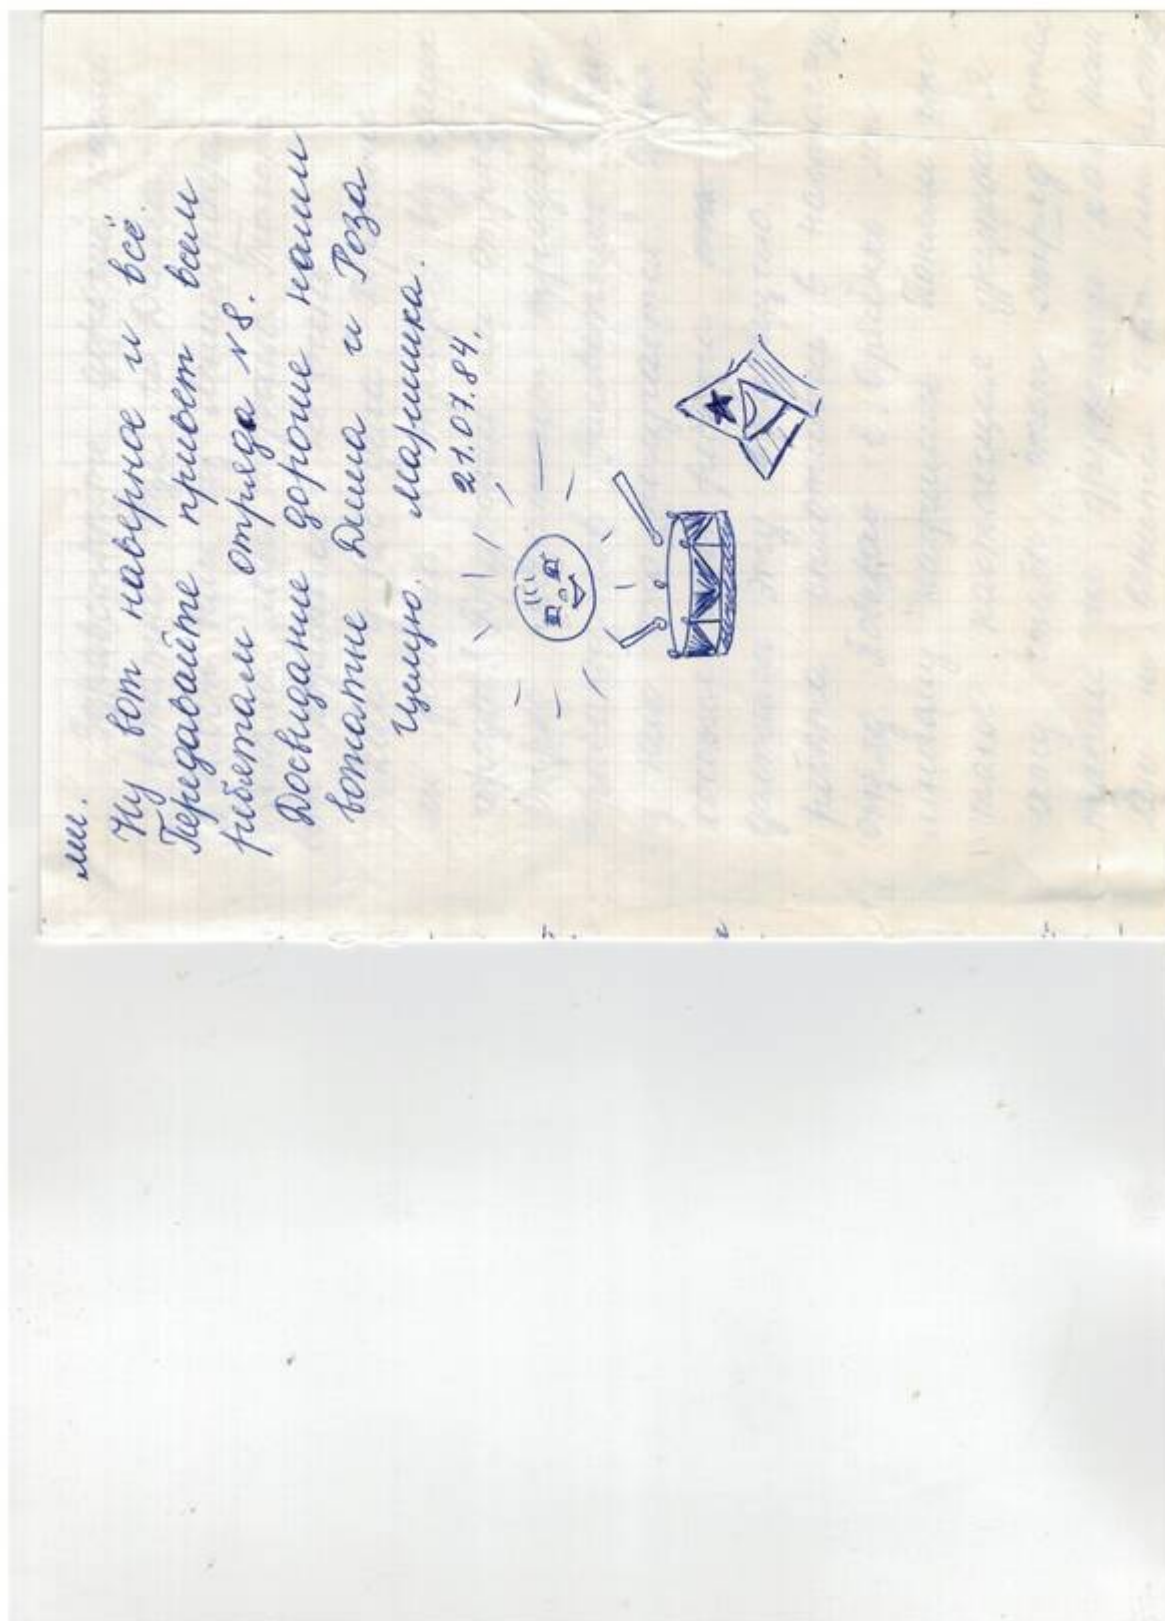 ми.
Ну вот наверное и всё.
Передавайте привет всем
ребятам отряда № 8.
Досвидание дорогие наши
вожатые Дима и Роза
Целую. Маришка.
21.07.84.